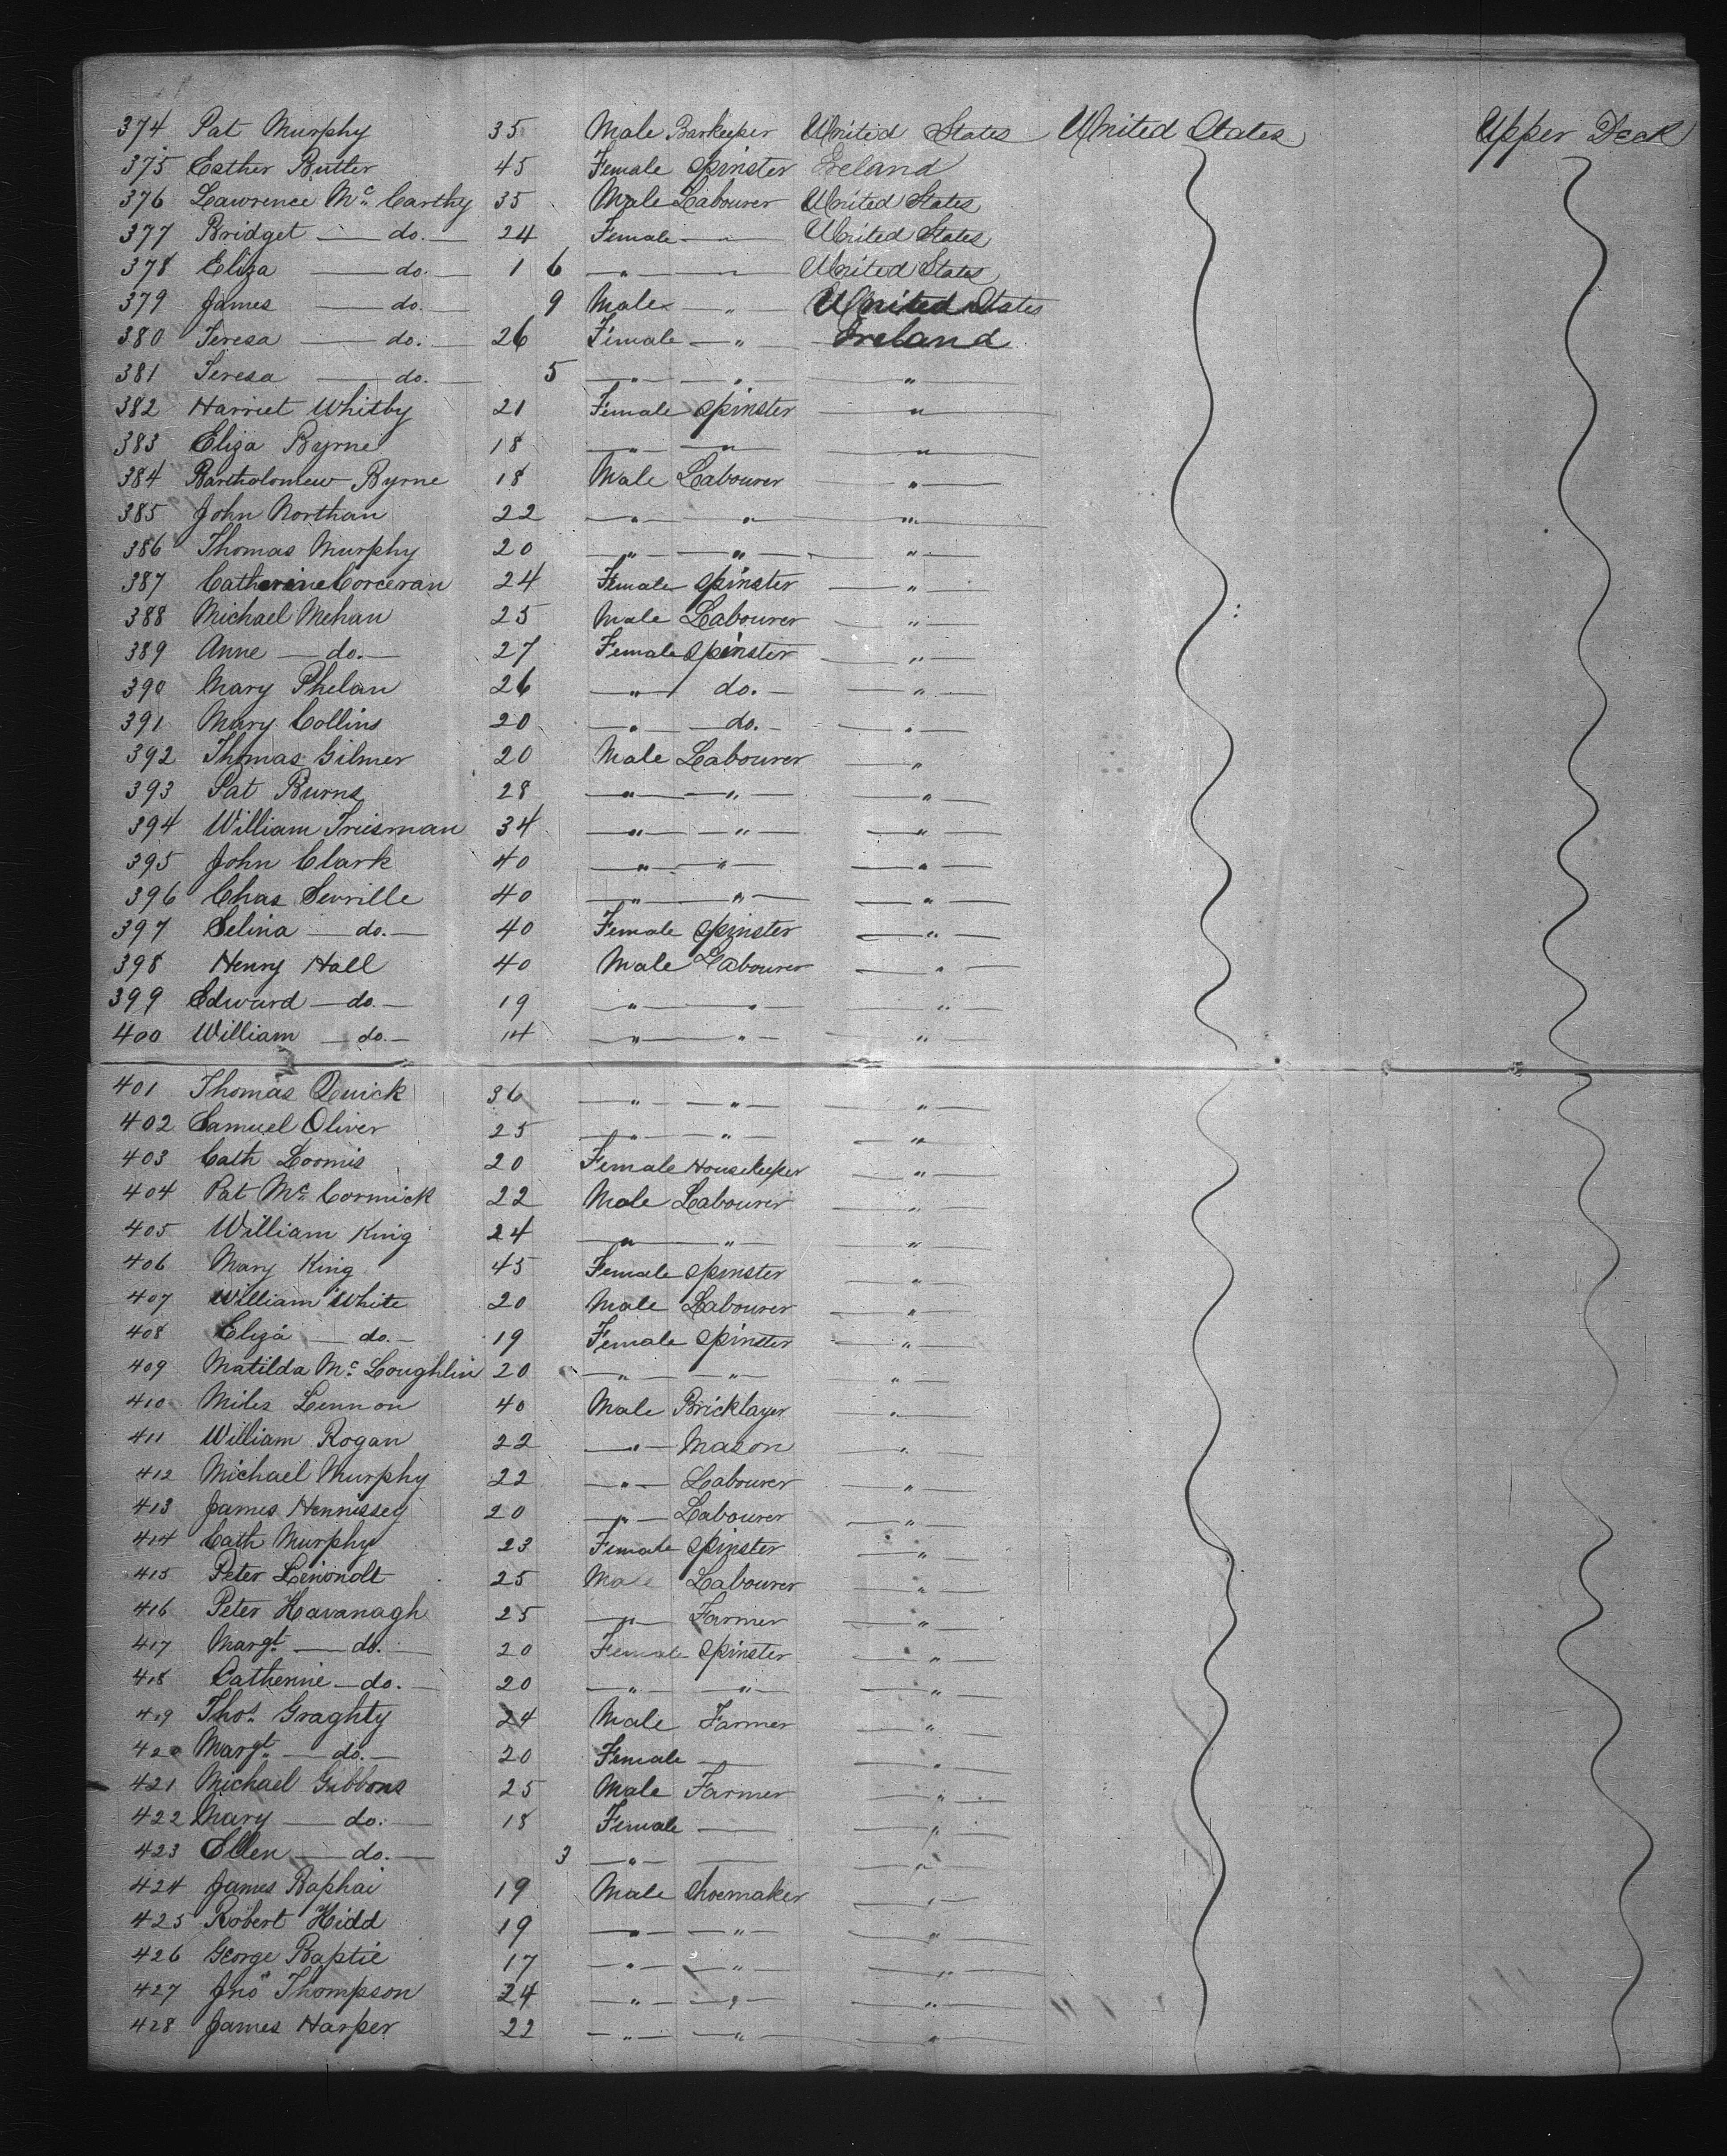 374 Pat Murphy 35 Male Barkeeper United States United States Upper Deck
375 Esther Butler 45 Female Spinster Ireland
376 Lawrence Mc. Carthy 35 Male Labourer United States
377 Bridget — do. — 24 Female — " — United States
378 Eliza — do. — 1 6 — " — " — United States
379 James — do. — 9 Male — " — United States
380 Teresa — do. — 26 Female — " — Ireland
381 Teresa — do. — 5 — " — " — "
382 Harriet Whitby 21 Female Spinster — " —
383 Eliza Byrne 18 — " — " — " —
384 Bartholomew Byrne 18 Male Labourer — " —
385 John Northan 22 — " — " — " —
386 Thomas Murphy 20 — " — " — " —
387 Catherine Corceran 24 Female Spinster — " —
388 Michael Mehan 25 Male Labourer — " —
389 Anne — do. — 27 Female Spinster — " —
390 Mary Phelan 26 — " — do. — " —
391 Mary Collins 20 — " — do. — " —
392 Thomas Gilmer 20 Male Labourer — " —
393 Pat Burns 28 — " — " — " —
394 William Friesman 34 — " — " — " —
395 John Clark 40 — " — " — " —
396 Chas Sevrille 40 — " — " — " —
397 Selina — do. — 40 Female Spinster — " —
398 Henry Hall 40 Male Labourer — " —
399 Edward — do. — 19 — " — " — " —
400 William — do. — 14 — " — " — " —
401 Thomas Quick 36 — " — " — " —
402 Samuel Oliver 25 — " — " — " —
403 Cath Loomis 20 Female Housekeeper — " —
404 Pat Mc. Cormick 22 Male Labourer — " —
405 William King 24 — " — " — " —
406 Mary King 45 Female Spinster — " —
407 William White 20 Male Labourer — " —
408 Eliza — do. — 19 Female Spinster — " —
409 Matilda Mc. Loughlin 20 — " — " — " —
410 Miles Lennon 40 Male Bricklayer — " —
411 William Rogan 22 — " — Mason — " —
412 Michael Murphy 22 — " — Labourer — " —
413 James Hennissey 20 — " — Labourer — " —
414 Cath Murphy 23 Female Spinster — " —
415 Peter 25 Male Labourer — " —
416 Peter Kavanagh 25 — " — Farmer — " —
417 Margt. — do. — 20 Female Spinster — " —
418 Catherine — do. — 20 — " — " — " —
419 Thos. Graghty 24 Male Farmer — " —
420 Margt. — do. — 20 Female — " —
421 Michael Gibbons 25 Male Farmer — " —
422 Mary — do. — 18 Female — " —
423 Ellen — do. — 3 — " — — " —
424 James Raphai 19 Male Shoemaker — " —
425 Robert Kidd 19 — " — " — " —
426 George Baptie 17 — " — " — " —
427 Jno Thompson 24 — " — " — " —
428 James Harper 22 — " — " — " —